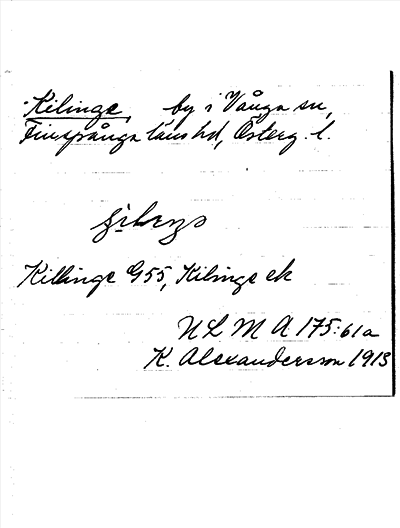 Kilinge, by i Vånga sn,
Finspånga läns hd, Österg. l.
Killinge G55, Kilinge ek
ULMA 175:61a
K. Alexandersson 1913